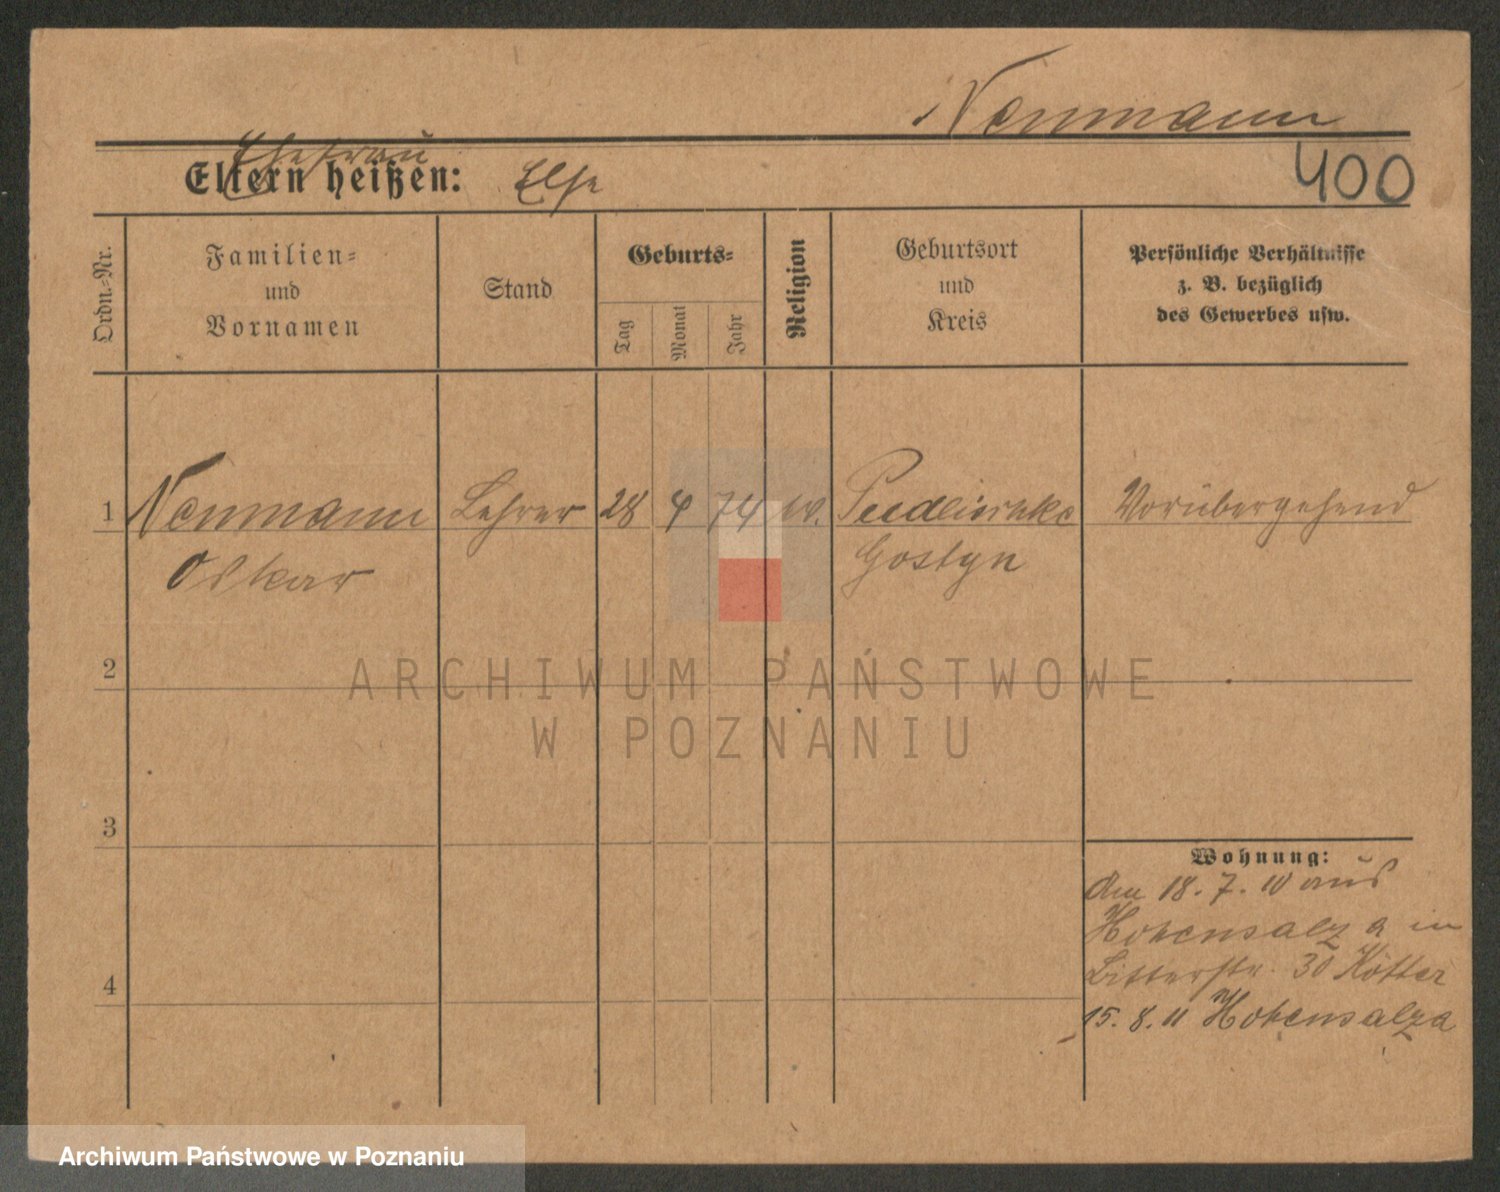 Neumann
400
Ehefrau
Eltern heißen: Else
Ordn.-Nr.
Familien-
und
Vornamen
Stand
Geburts-
Tag
Monat
Jahr
Religion
Geburtsort
und
Kreis
Persönliche Verhältnisse
z. B. bezüglich
des Gewerbes usw.
1 Neumann Lehrer 28 4 74 Vorübergehend
Oskar Gostyn
2
3
4
Wohnung:
den 18. 7. 10 aus
Hohensalza in
30
15. 8. 11 Hohensalza
ARCHIWUM PAŃSTWOWE
W POZNANIU
Archiwum Państwowe w Poznaniu